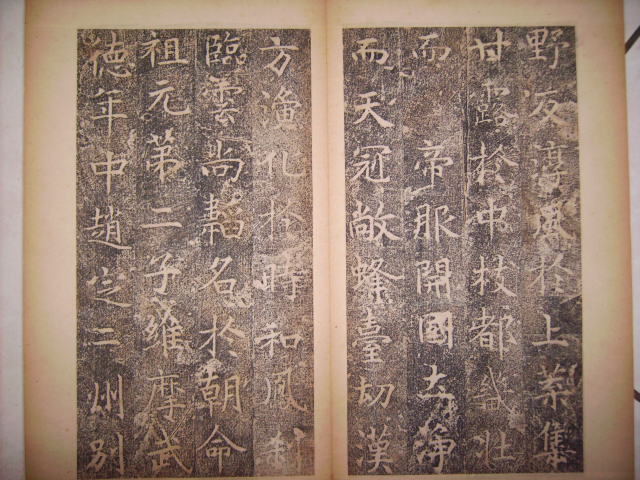 野反淳風於上葉集
甘露於中枝都畿壯
而帝服開國土淨
而天冠敞蜂臺切漢
方漁化於時和鳳刹
臨雲尚韜名於朝命
祖元第二子維摩武
徳年中趙定二州別